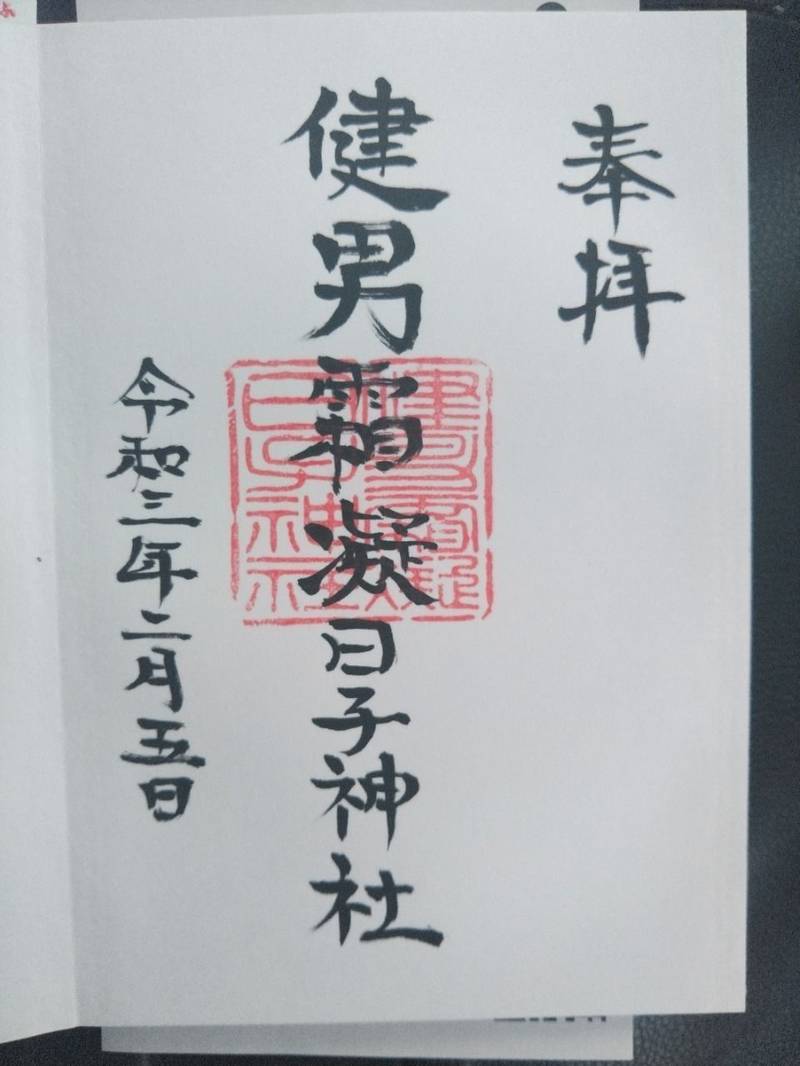 奉拝
健男霜凝日子神社
令和三年二月五日